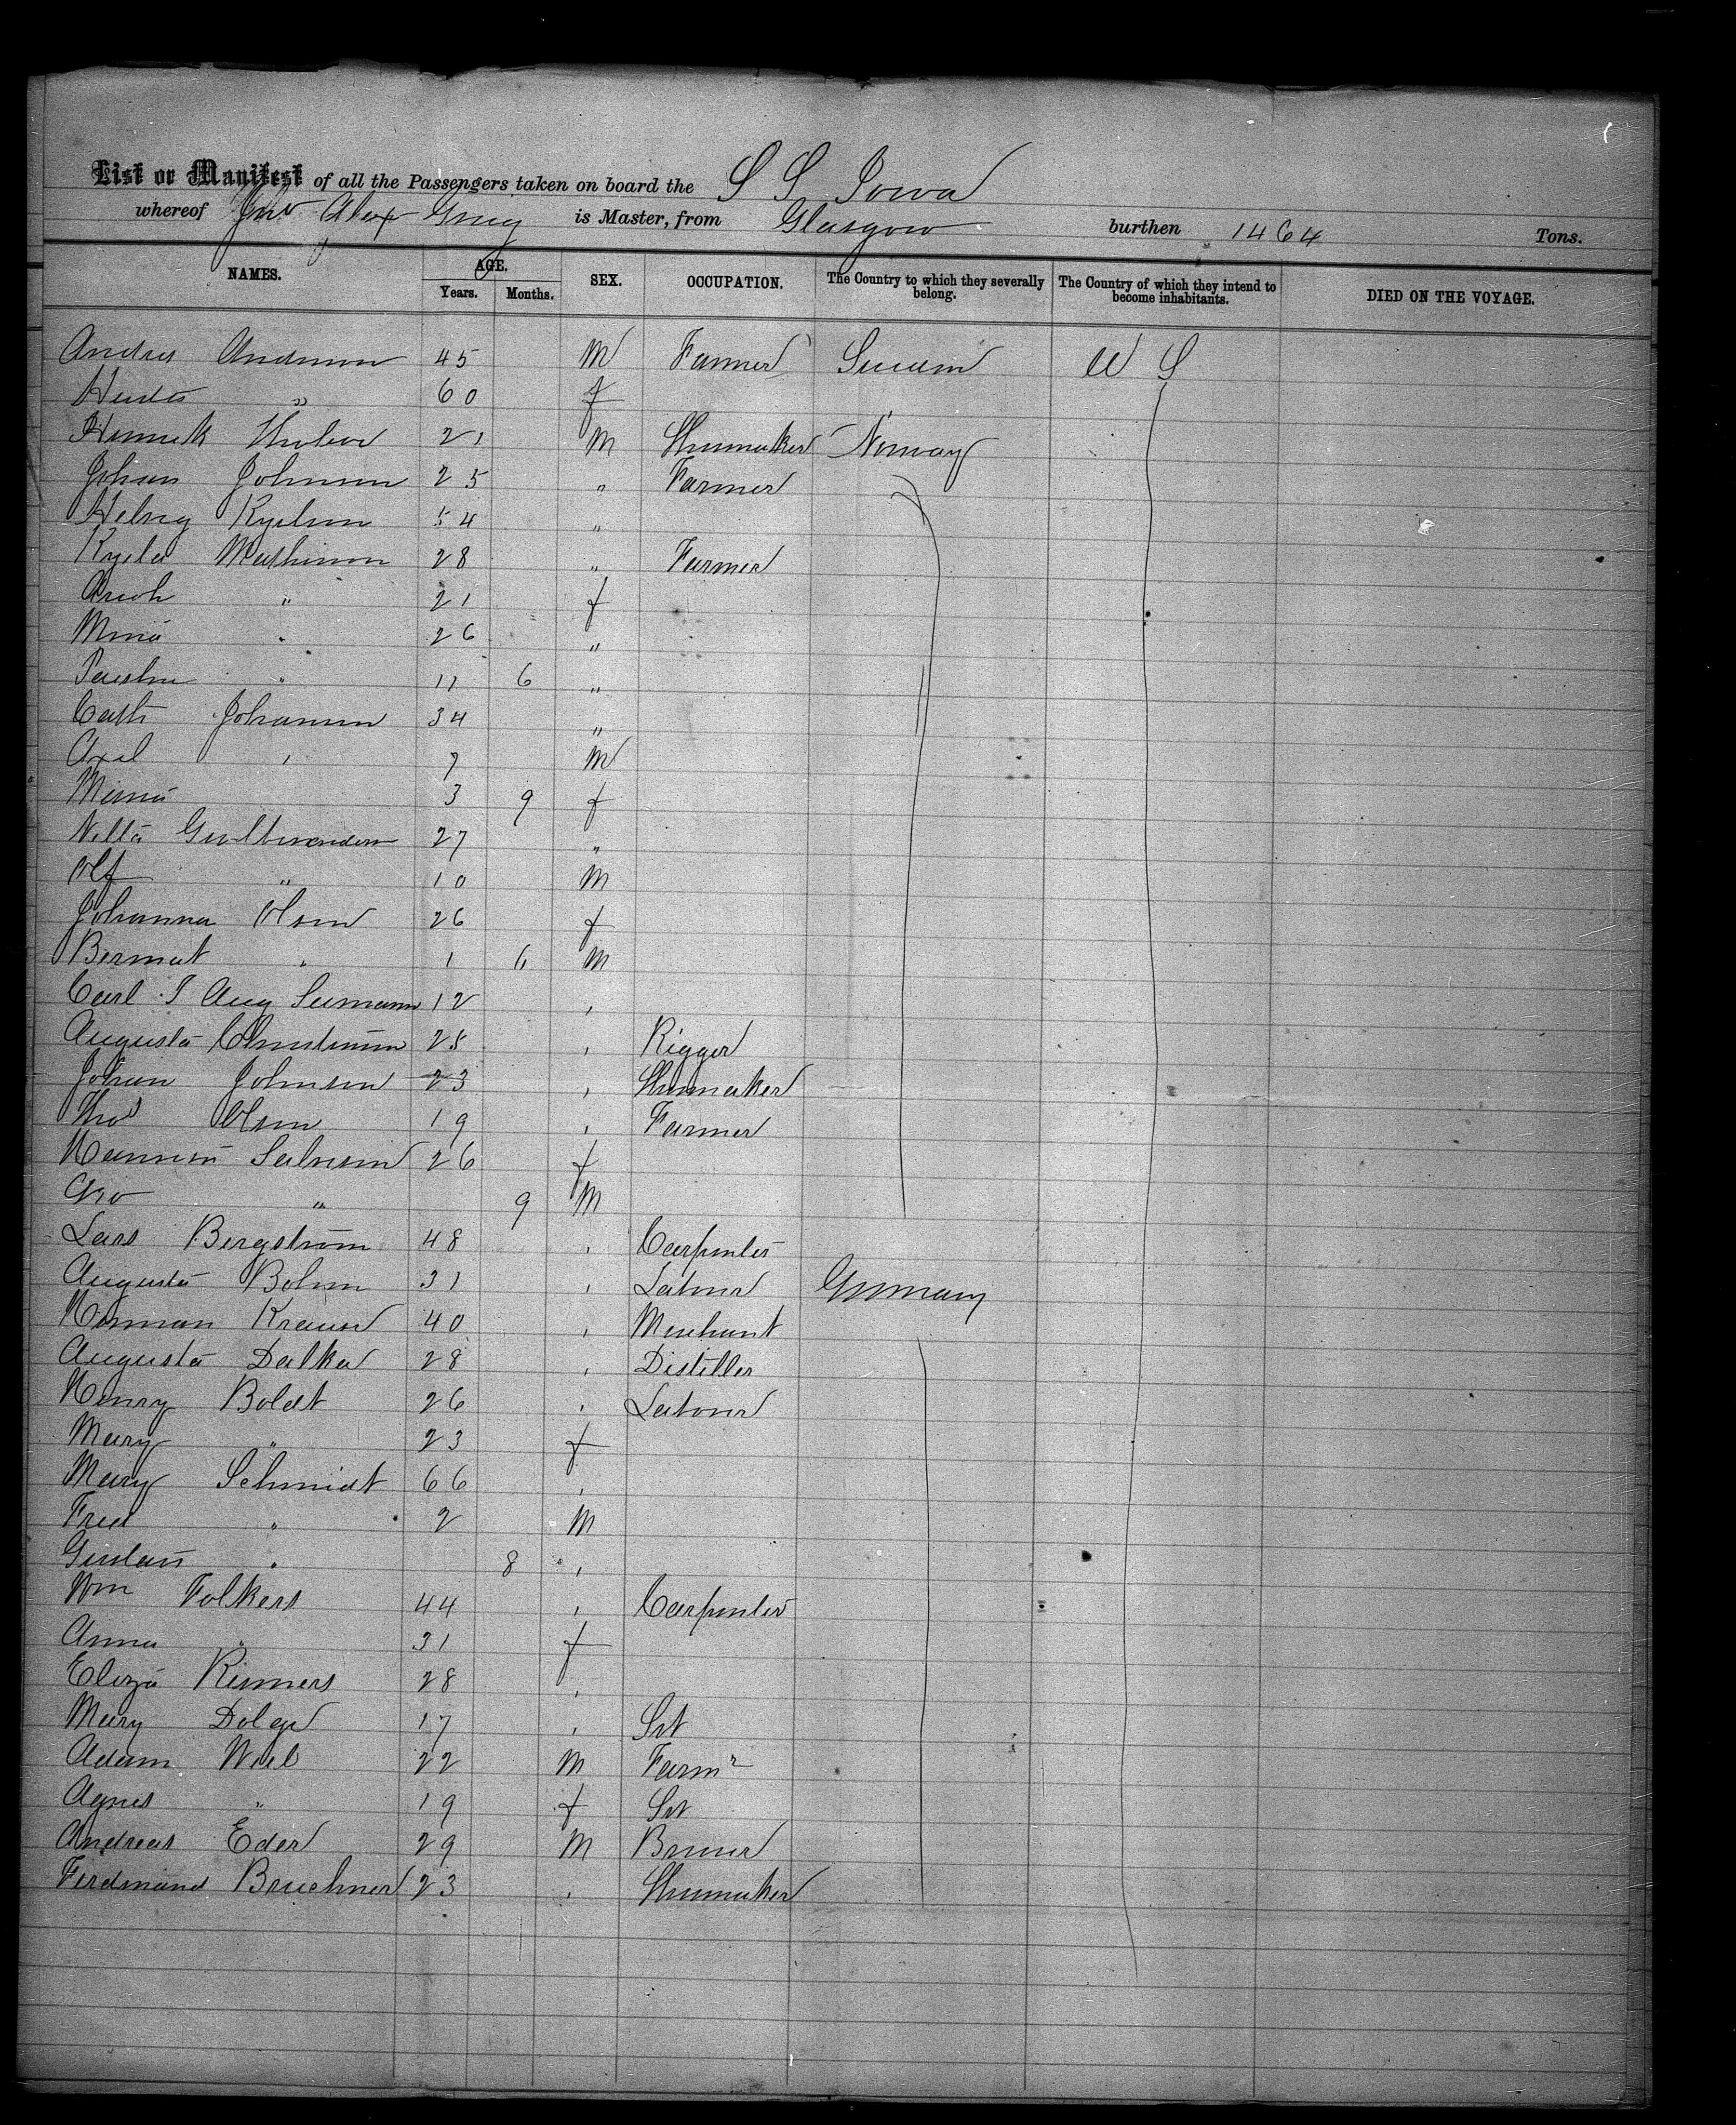 List or Manifest of all the Passengers taken on board the S S Iowa
whereof Jno Alex Greig is Master, from Glasgow burthen 1464 Tons.
NAMES. AGE. SEX. OCCUPATION. The Country to which they severally belong. The Country of which they intend to become inhabitants. DIED ON THE VOYAGE.
Years. Months.
Andrs Anderson 45 M Farmer Sweden U S
" 60 f
21 M Shumaker Norway
Johan Johnson 25 " Farmer
54 "
Mathison 28 " Farmer
" 21 f
" 26 "
" 11 6 "
Cath Johansen 34 "
Axel " 7 M
Minna 3 9 f
27 "
Olf " 10 M
Johanna Olsen 26 f
" 1 6 M
Carl J Aug 12 "
Augusta Christensen 28 " Rigger
Johan Johnson 23 " Shumaker
Thos Olsen 19 " Farmer
26 f
" 9 M
Lars Bergstrom 48 " Carpenter
Augusta Bohm 31 " Labour Germany
Herman Krause 40 " Merchant
Augusta Dalka 28 " Distiller
Henry Boldt 26 " Labour
Mary " 23 f
Mary Schmidt 66 "
Fred " 2 M
" 8 "
Wm Folkers 44 " Carpenter
Anna " 31 f
Eliza Rimers 28 "
Mary Dolge 17 " Svt
Adam Weil 22 M Farmr
Agnes " 19 f Svt
Andreas Eder 29 M Brewer
Ferdinand Bruchner 23 " Shumaker